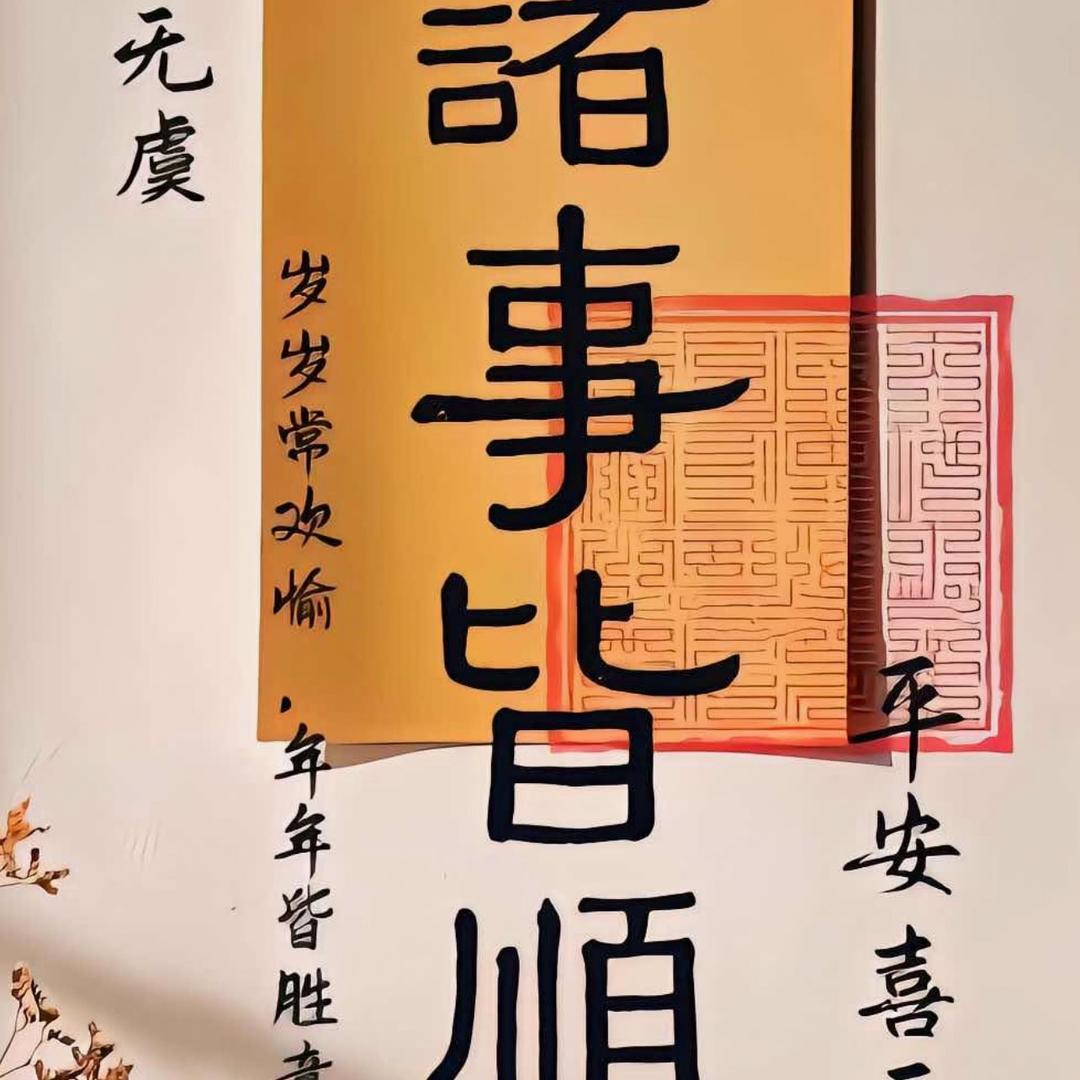 平安喜
諸事皆順
岁岁常欢愉·年年皆胜意
无虞